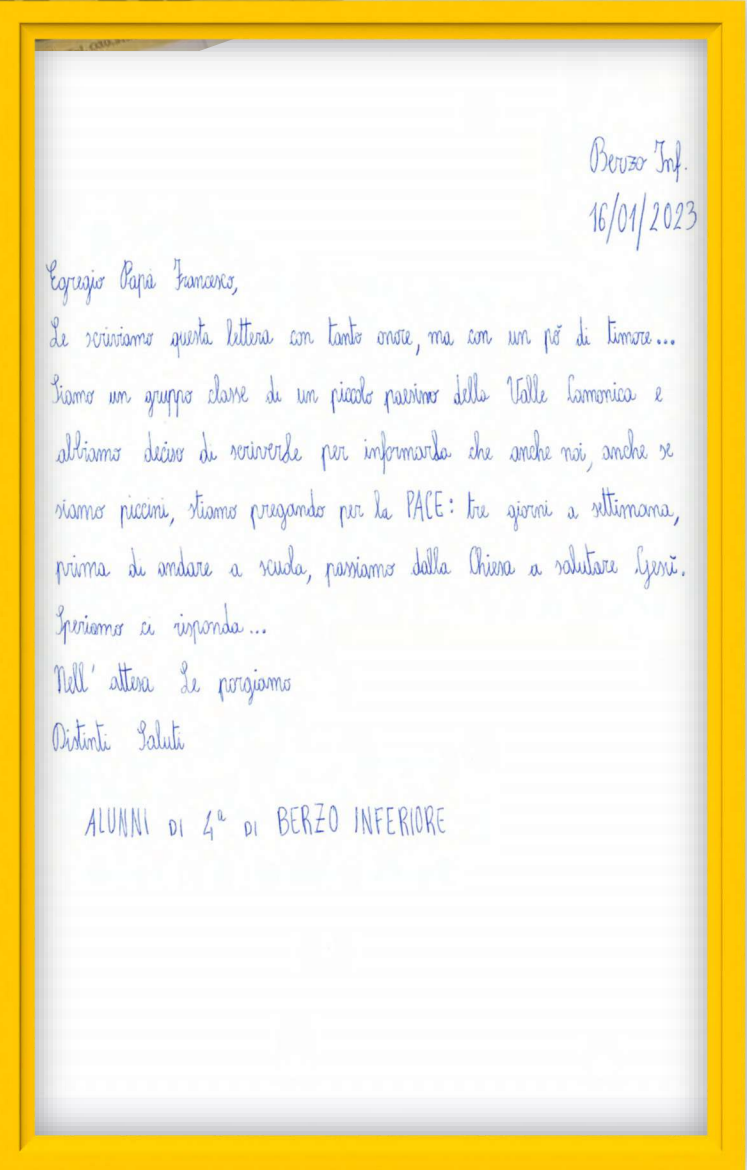 Berzo Inf.
16/01/2023
Egregio Papa Francesco,
Le scriviamo questa lettera con tanto onore, ma con un pò di timore...
Siamo un gruppo classe di un piccolo paesino della Valle Camonica e
abbiamo deciso di scriverLe per informarLa che anche noi, anche se
siamo piccini, stiamo pregando per la PACE: tre giorni a settimana,
prima di andare a scuola, passiamo dalla Chiesa a salutare Gesù.
Speriamo ci risponda...
Nell' attesa Le porgiamo
Distinti Saluti
ALUNNI DI 4ª DI BERZO INFERIORE